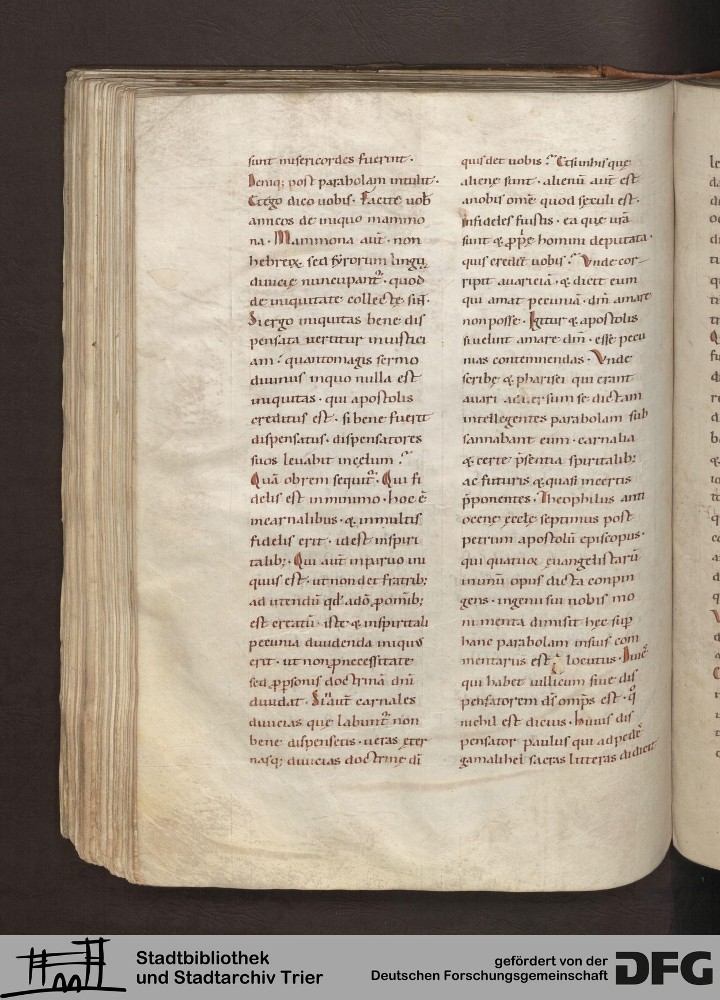 sunt misericordes fuerint·
Deniq; post parabolam intulit·
Et ego dico uobis· Facite uob̅
amicos de iniquo mammo
na· Mammona aut̅· non
hebreꝝ, sed syrorum lingu̅
diuicię nuncupant᷑· quod
de iniquitate collectę sint·
Si ergo iniquitas bene dis
pensata uertitur in iustici
am· quantomagis sermo
diuinus in quo nulla est
iniquitas· qui apostolis
creditus est· si bene fuerit
dispensatus· dispensatores
suos leuabit in cęlum·
Quã obrem sequit᷑· Qui fi
delis est in minimo· hoc ẽ
in carnalibus· & in multis
fidelis erit· id est in spiri
talib;· Qui aut̅ in paruo ini
quus est· ut non det fratrib;
ad utendũ qđ a dõ ꝓ omib;
est creatũ· iste & in spiritali
pecunia diuidenda iniquus
erit· ut non ꝑ necessitate
sed ꝓ ꝑsonis doctrinã dni̅
diuidat· Si aut̅ carnales
diuicias quę labunt᷑ non
bene dispensetis· ueras ęter
nasq; diuicias doctrinę di̅
quis det uobis· Et si in his quę
aliena sunt· alienũ aut̅ est
a nobis om̅e quod sęculi est·
infideles fuistis· ea quę ur̅a
sunt & ꝓp̅e homini deputata·
quis credet uobis· Vnde cor-
ripit auariciã· & dicit eum
qui amat pecuniã· dm̅ amare
non posse· Igitur & apostolis
si uelint amare dm̅· esse pecu
nias contemnendas· Vnde
scribę & pharisei qui erant
auari aduersum se dictam
intellegentes parabolam sub
sannabant eum· carnalia
& certe p̅sentia spiritalib;
ac futuris & quasi incertis
p̅ponentes· Theophilus anti
ocenę ęcclę septimus post
petrum apostolũ episcopus·
qui quatuor euangelistarũ
in unũ opus dicta conpin
gens· ingenii sui nobis mo
nimenta dimisit hęc sup̅
hanc parabolam in suis com
mentariis est locutus· Diues
qui habet uillicum siue dis
pensatorem ds̅ omp̅s est· q̊
nichil est dicius· Huius dis
pensator paulus qui ad pedes
gamalihel sacras litteras didicit
Stadtbibliothek
und Stadtarchiv Trier
gefördert von der
Deutschen Forschungsgemeinschaft
DFG